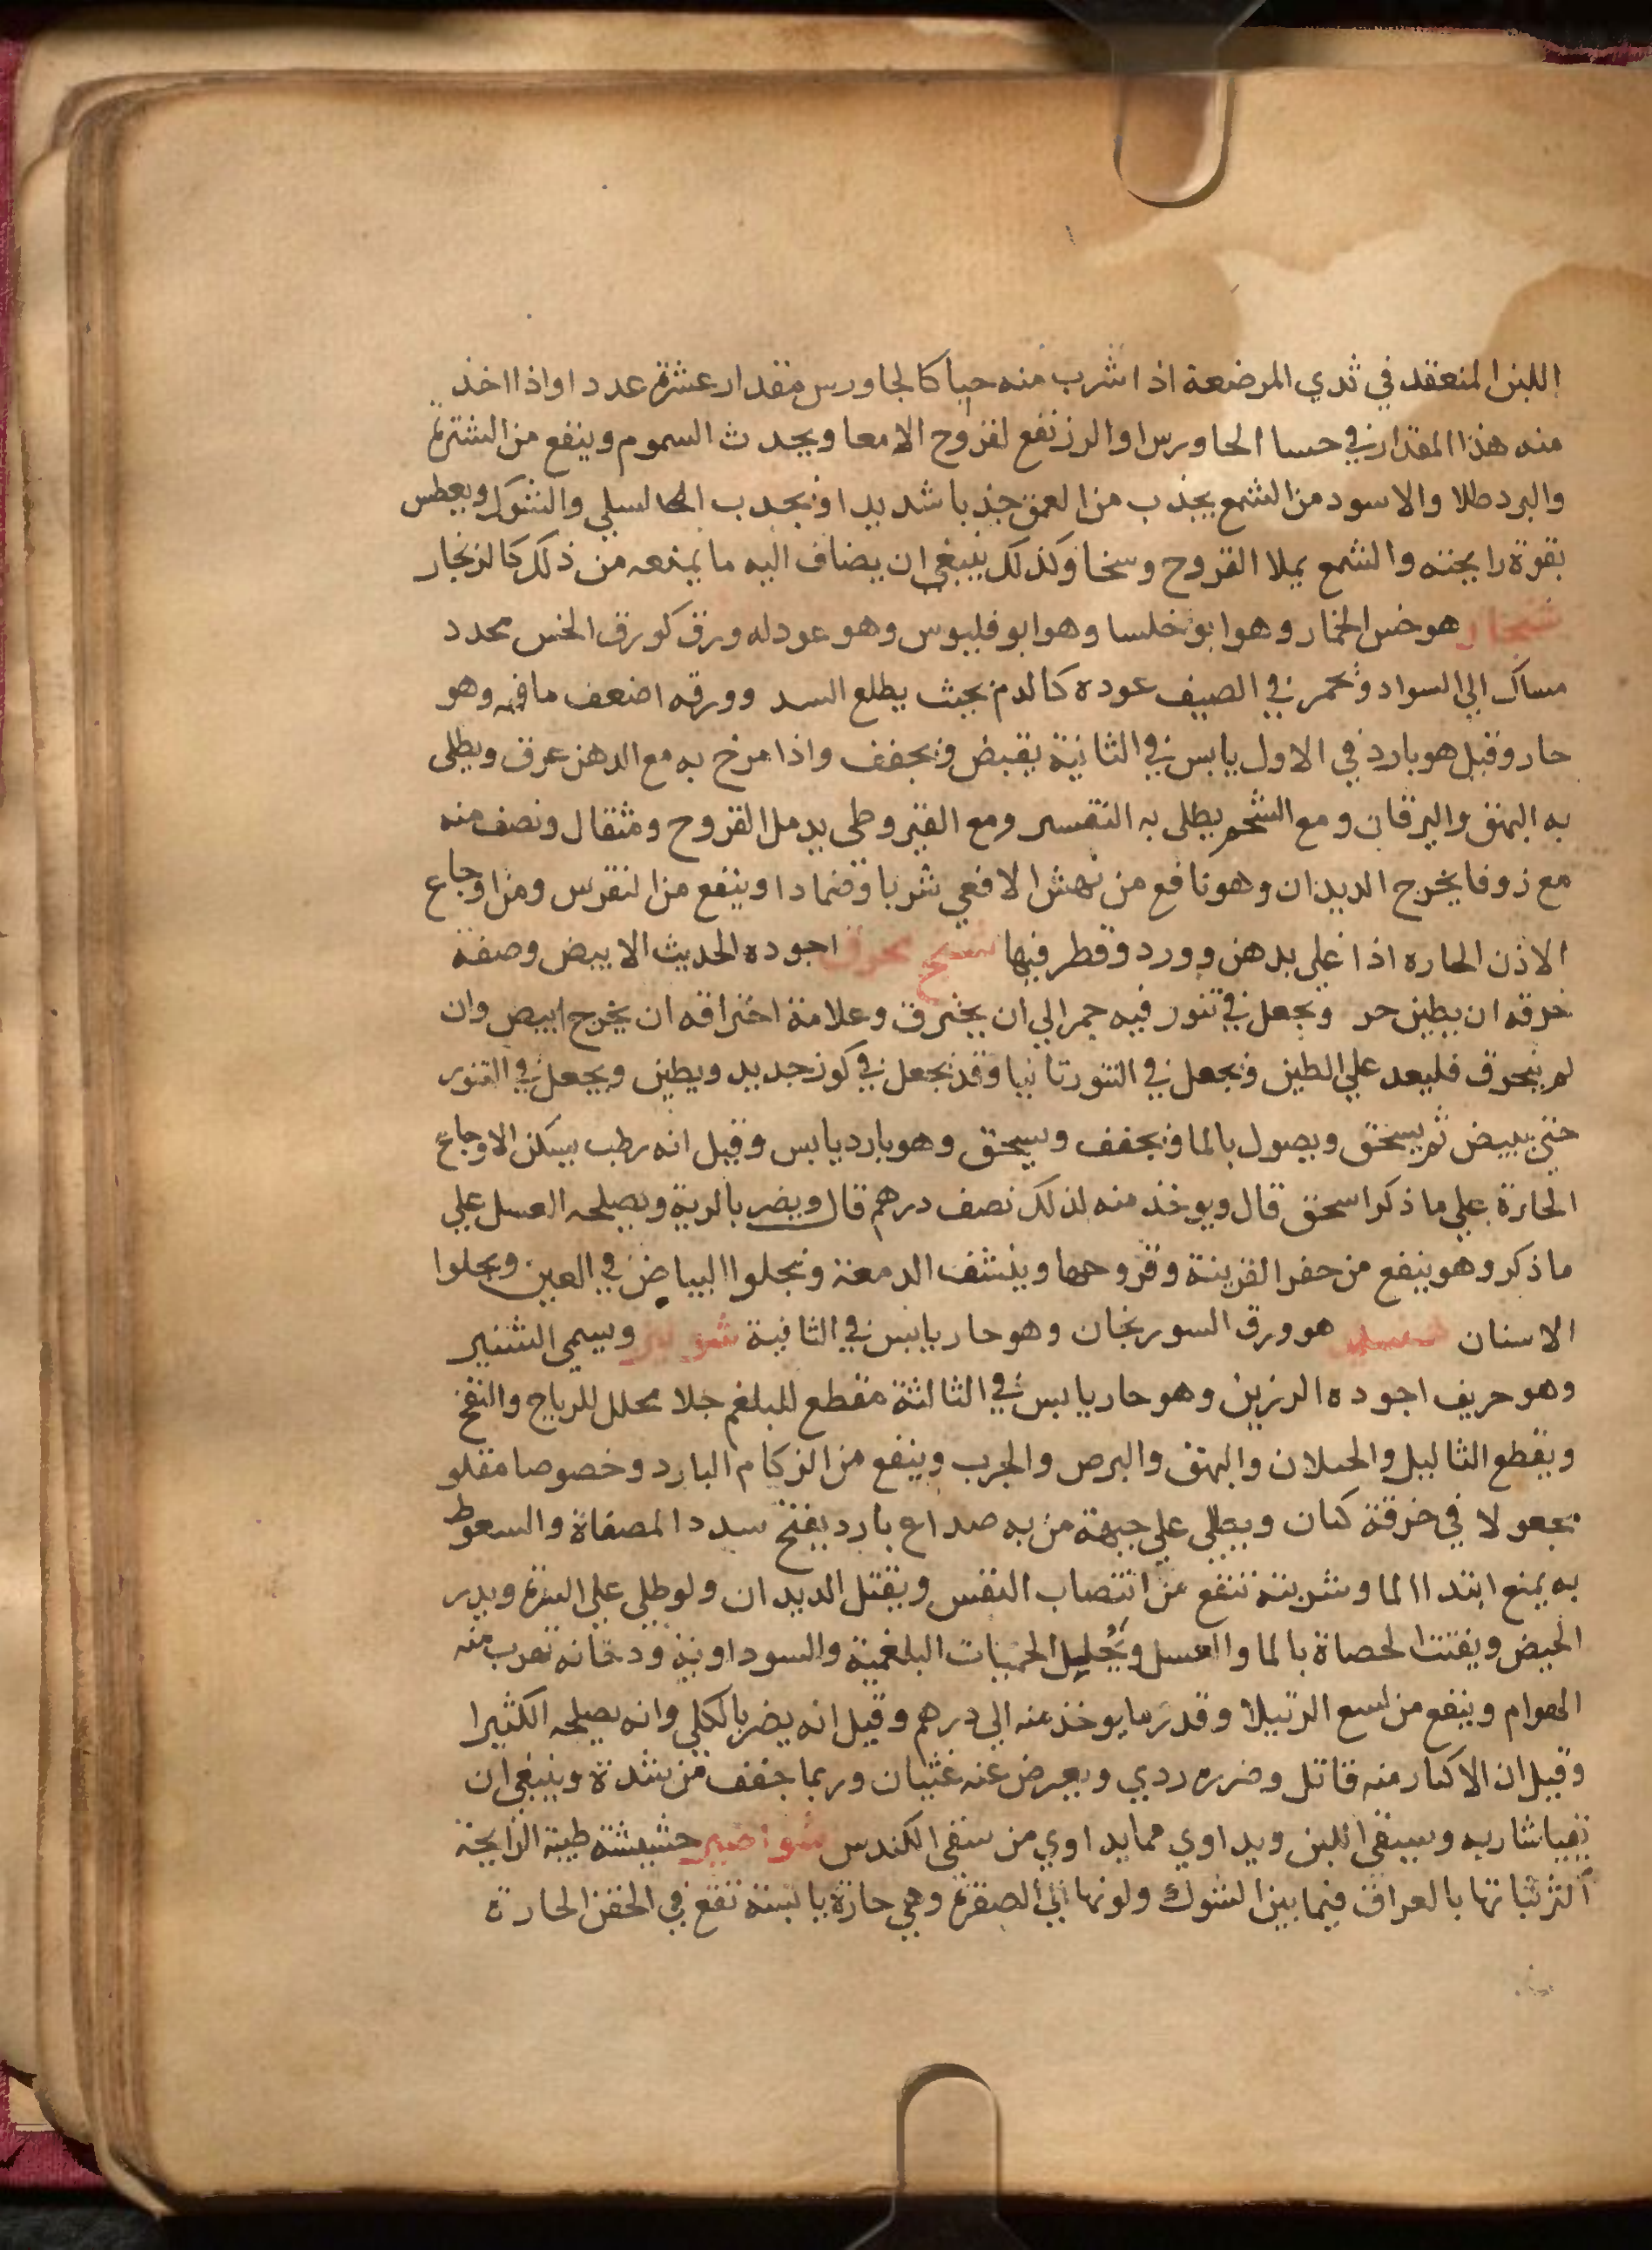 اللبن المنعقد في ثدي المرضعة اذا شرب منه حبا كالجاورس مقدار عشرة عددا واذا اخذ
منه هذا المقدار في حسا الجاورس او الرز نفع لقروح الامعا ويجدث السموم وينفع من الشترة
والبرد طلا والاسود من الشمع يجذب من العمق جذبا شديدا ويجدب السلي والشوك ويعطس
بقوة رايجته والشمع يملا القروح وسخا وكذلك ينبغي ان يضاف اليه ما يمنعه من ذلك كالزنجار
شنجار هو خس الخمار وهو ابو خلسا وهو ابو فليوس وهو عود له ورق كورق الخس محدد
مساك الي السواد ويحمر في الصيف عوده كالدم بحيث يطلع اليد وورقه اضعف ما فيه وهو
حار وقيل هو بارد في الاول يابس في الثانية يقبض ويجفف واذا مرخ به مع الدهن عرق ويطلى
به البهق واليرقان ومع الشحم يطلى به التقسر ومع القيروطى يدمل القروح ومثقال ونصف منه
مع زوفا يخرج الديدان وهو نافع من نهش الافعي شربا وضمادا وينفع من النقرس ومن اوجاع
الاذن الحاره اذا غلي بدهن وورد وقطر فيها شنج محرق اجوده الحديث الابيض وصفة
حرقه ان يطين حر ويجعل في تنور فيه جمر الي ان يحترق وعلامة احتراقه ان يخرج ابيض وان
لم يحرق فليعد علي الطين ويجعل في التنور ثانيا وقد يجعل في كوز جديد ويطين ويجعل في التنور
حتي يبيض ثم يسحق ويصول بالما ويجفف ويسحق وهو بارد يابس وقيل انه رطب يسكن الاوجاع
الحارة علي ما ذكر اسحق قال ويوخذ منه لذلك نصف درهم قال ويضر بالرية ويصلحه العسل علي
ما ذكر وهو ينفع من حفر القرينة وقروحها وينشف الدمعة ويجلوا البياض في العين ويجلوا
الاسنان هو ورق السورنجان وهو حار يابس في الثانية شونيز ويسمي الشنير
وهو حريف اجوده الرزين وهو حار يابس في الثالثة مقطع للبلغم جلا محلل للرياج والنفخ
ويقطع الثاليل والحيلان والبهق والبرص والجرب وينفع من الزكام البارد وخصوصا مقلو
مجعولا في خرقة كتان ويطلي علي جبهة من به صداع بارد يفتح سدد المصفاة والسعوط
به يمنع ابتدا الما وشربته تنفع من انتصاب النفس ويقتل الديدان ولو طلي علي السرة ويدر
الحيض ويفتت الحصاة بالما والعسل ويحليل الحميات البلغمية والسوداوية ودخانه تهرب منه
الهوام وينفع من لسع الرتيلا وقدر ما يوخذ منه الي درهم وقيل انه يضر بالكلي وانه يصلحه الكثيرا
وقيل ان الاكثار منه قاتل وضرره ردي ويعرض عنه غثيان وربما خفف من شدة وينبغي ان
تقيا شاربه ويسقي اللبن ويداوي مما يداوي من سقي الكندس شواصير حشيشة طيبة الرايحة
اكثر نباتها بالعراق فيما بين الشوك ولونها الي الصفرة وهي حارة يابسة تنفع في الحقن الحارة